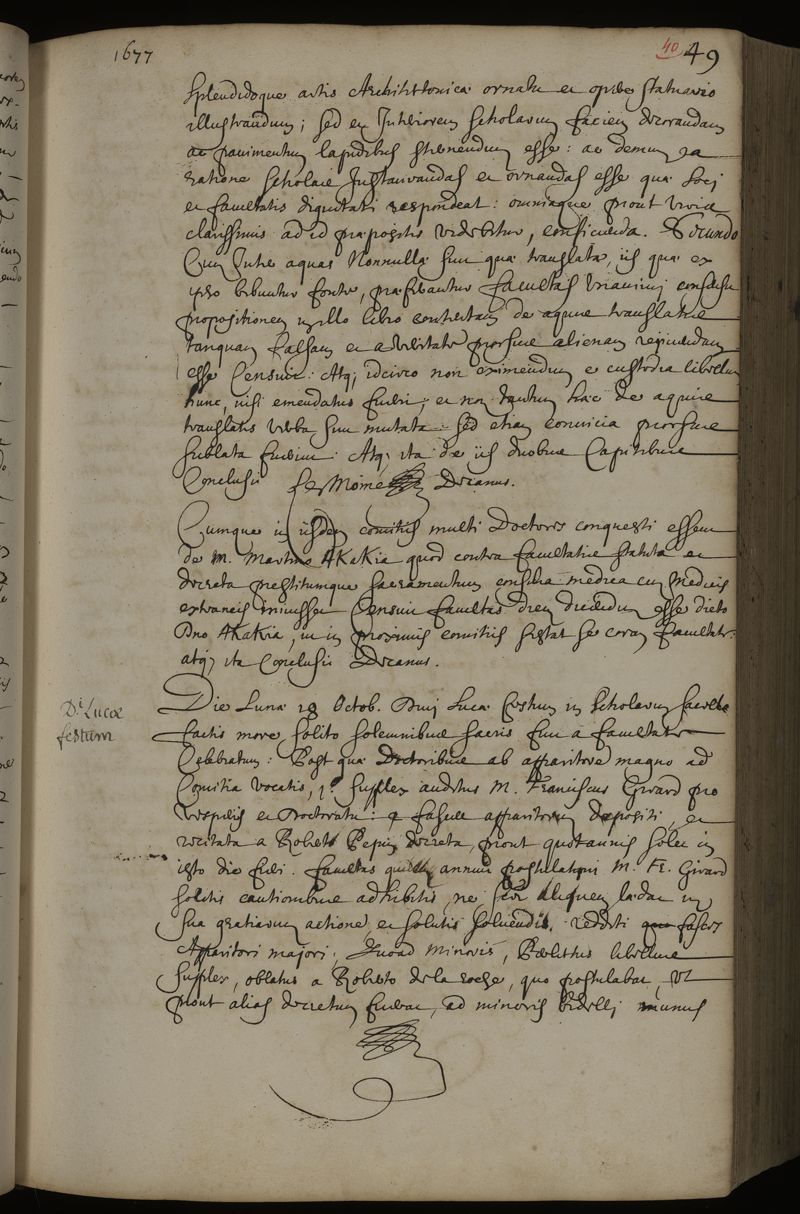 1677
40 49
splendidoque artis Architectonicæ ornatu et opere statuario
illustrandum; sed et Interiorem scholarum faciem decorandam
ac pavimentum lapidibus sternendum esse: ac demum ea
ratione scholas Instaurandas et ornandas esse quæ loci
et facultatis dignitati respondeat: omniaque prout viris
clarissimis ad id præpositis videbitur, conficienda. Secundo
Cum Inter aquas Nonnullæ sint quæ translatæ, iis quæ ex
ipso bibuntur fonte, præferantur facultas unanimi consensu
propositionem in illo libro contentam de aquis translatis
tanquam falsam et a veritate prorsus alienam reiiciendam
esse Censuit. Atq; idcirco non eximendum e custodia libellum
hunc, nisi emendatus fuerit; et non tantum hæc de aquis
translatis verba sint mutata: sed etiam convicia prorsus
sublata fuerint. Atq; ita de iis duobus Capitibus
Conclusit Le Moine Decanus.
Cumque in iisdem comitiis multi Doctores conquesti essent
de M. Martino AKaKia quod contra facultatis statuta et
decreta præstitumque sacramentum consilia medica cum Medicis
extraneis iniisset Censuit facultas diem dicendum esse dicto
Dno AKaKia, ut in proximis comitiis sistat se coram facultate.
atq; ita Conclusit Decanus.
Di Lucæ
festum
Die Lunæ 18 Octob. Divi Lucæ festum in scholarum sacello
factis more solito solemnibus sacris fuit a facultate
Celebratum: Post quæ Doctoribus ab apparitore magno ad
Comitia vocatis, 1o. supplex auditus M. Franciscus Girard pro
Vesperiis et Doctoratu: fasces apparitorum depositi, et
recitata a Roberto Pepin decreta, prout quotannis solet in
isto die fieri. facultas annuit postulationi M. Fr. Girard
solitis cautionibus adhibitis, ne scilicet aliquem lædat in
sua gratiarum actione, et solutis solvendis. redditi fasces
Apparitori majori; Quoad minoris, libellus
supplex, oblatus a Roberto de la roche, quo postulabat, ut
prout alias decretum fuerat, ad minoris bidelli munus